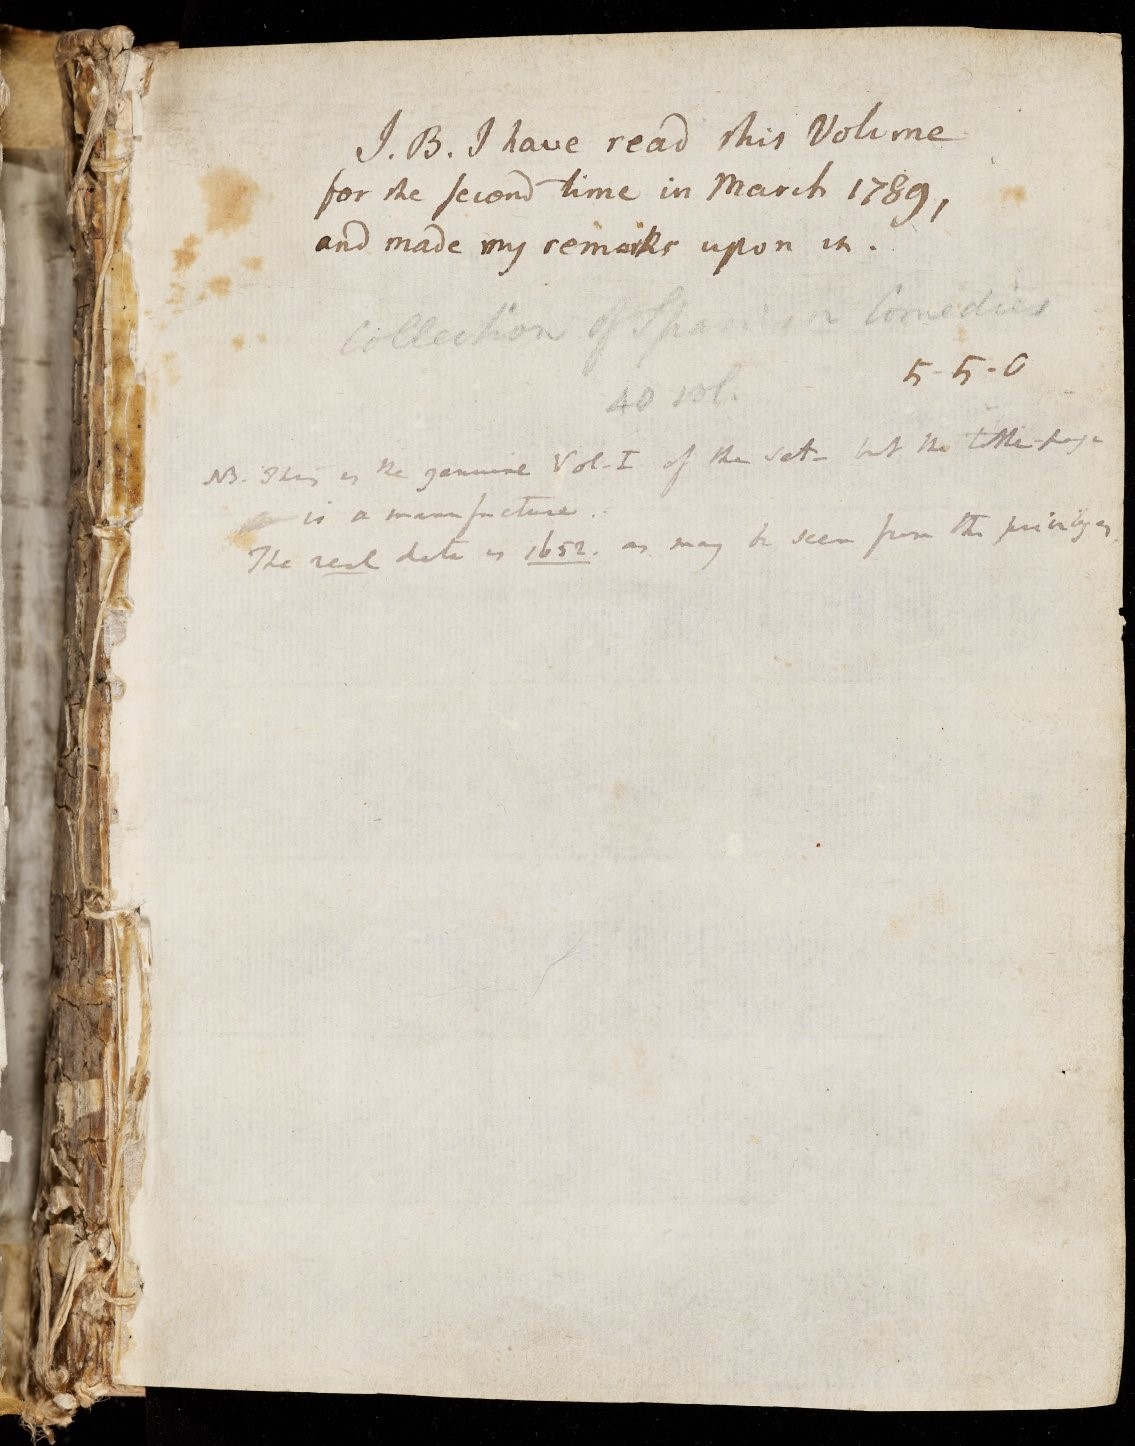 J. B. I have read this Volume
for the second time in March 1789,
and made my remarks upon it.
Collection of Spanish Comedies
5-5-0
40 vol.
NB. This is the genuine Vol. I of the set – but the title-page
is a manufacture.
The real date is 1652. as may be seen from the privileges